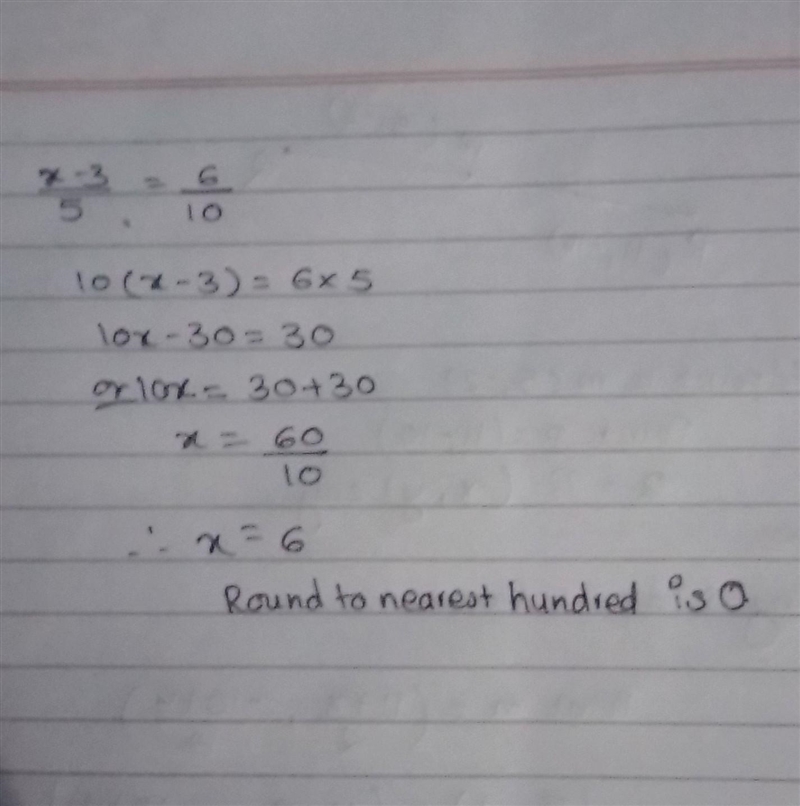 x-3/5 = 6/10
10(x-3) = 6×5
10x-30 = 30
or 10x = 30+30
x = 60/10
∴ x = 6
Round to nearest hundred is 0